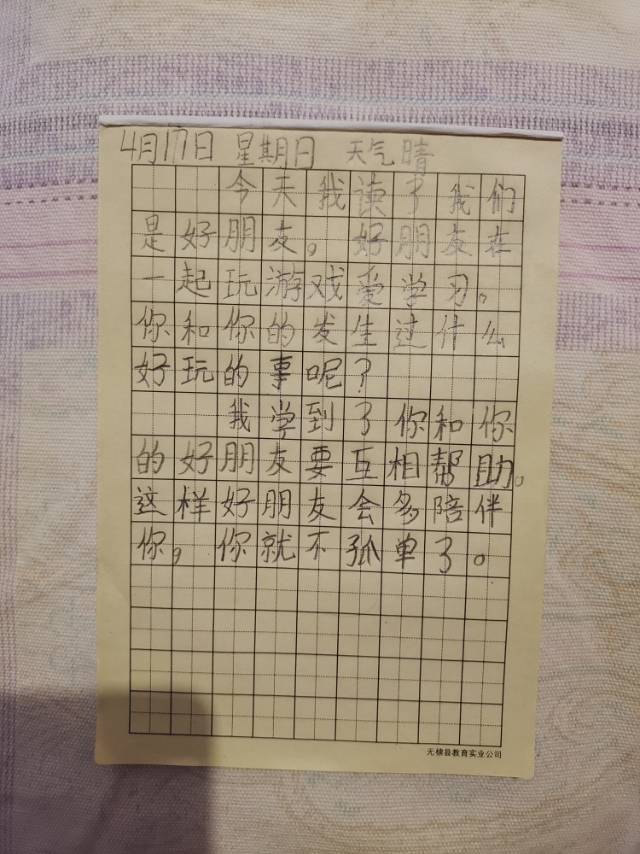 4月17日 星期日 天气晴
今天我读了我们
是好朋友,好朋友在
一起玩游戏爱学习。
你和你的发生过什么
好玩的事呢?
我学到了你和你
的好朋友要互相帮助。
这样好朋友会多陪伴
你,你就不孤单了。
无棣县教育实业公司